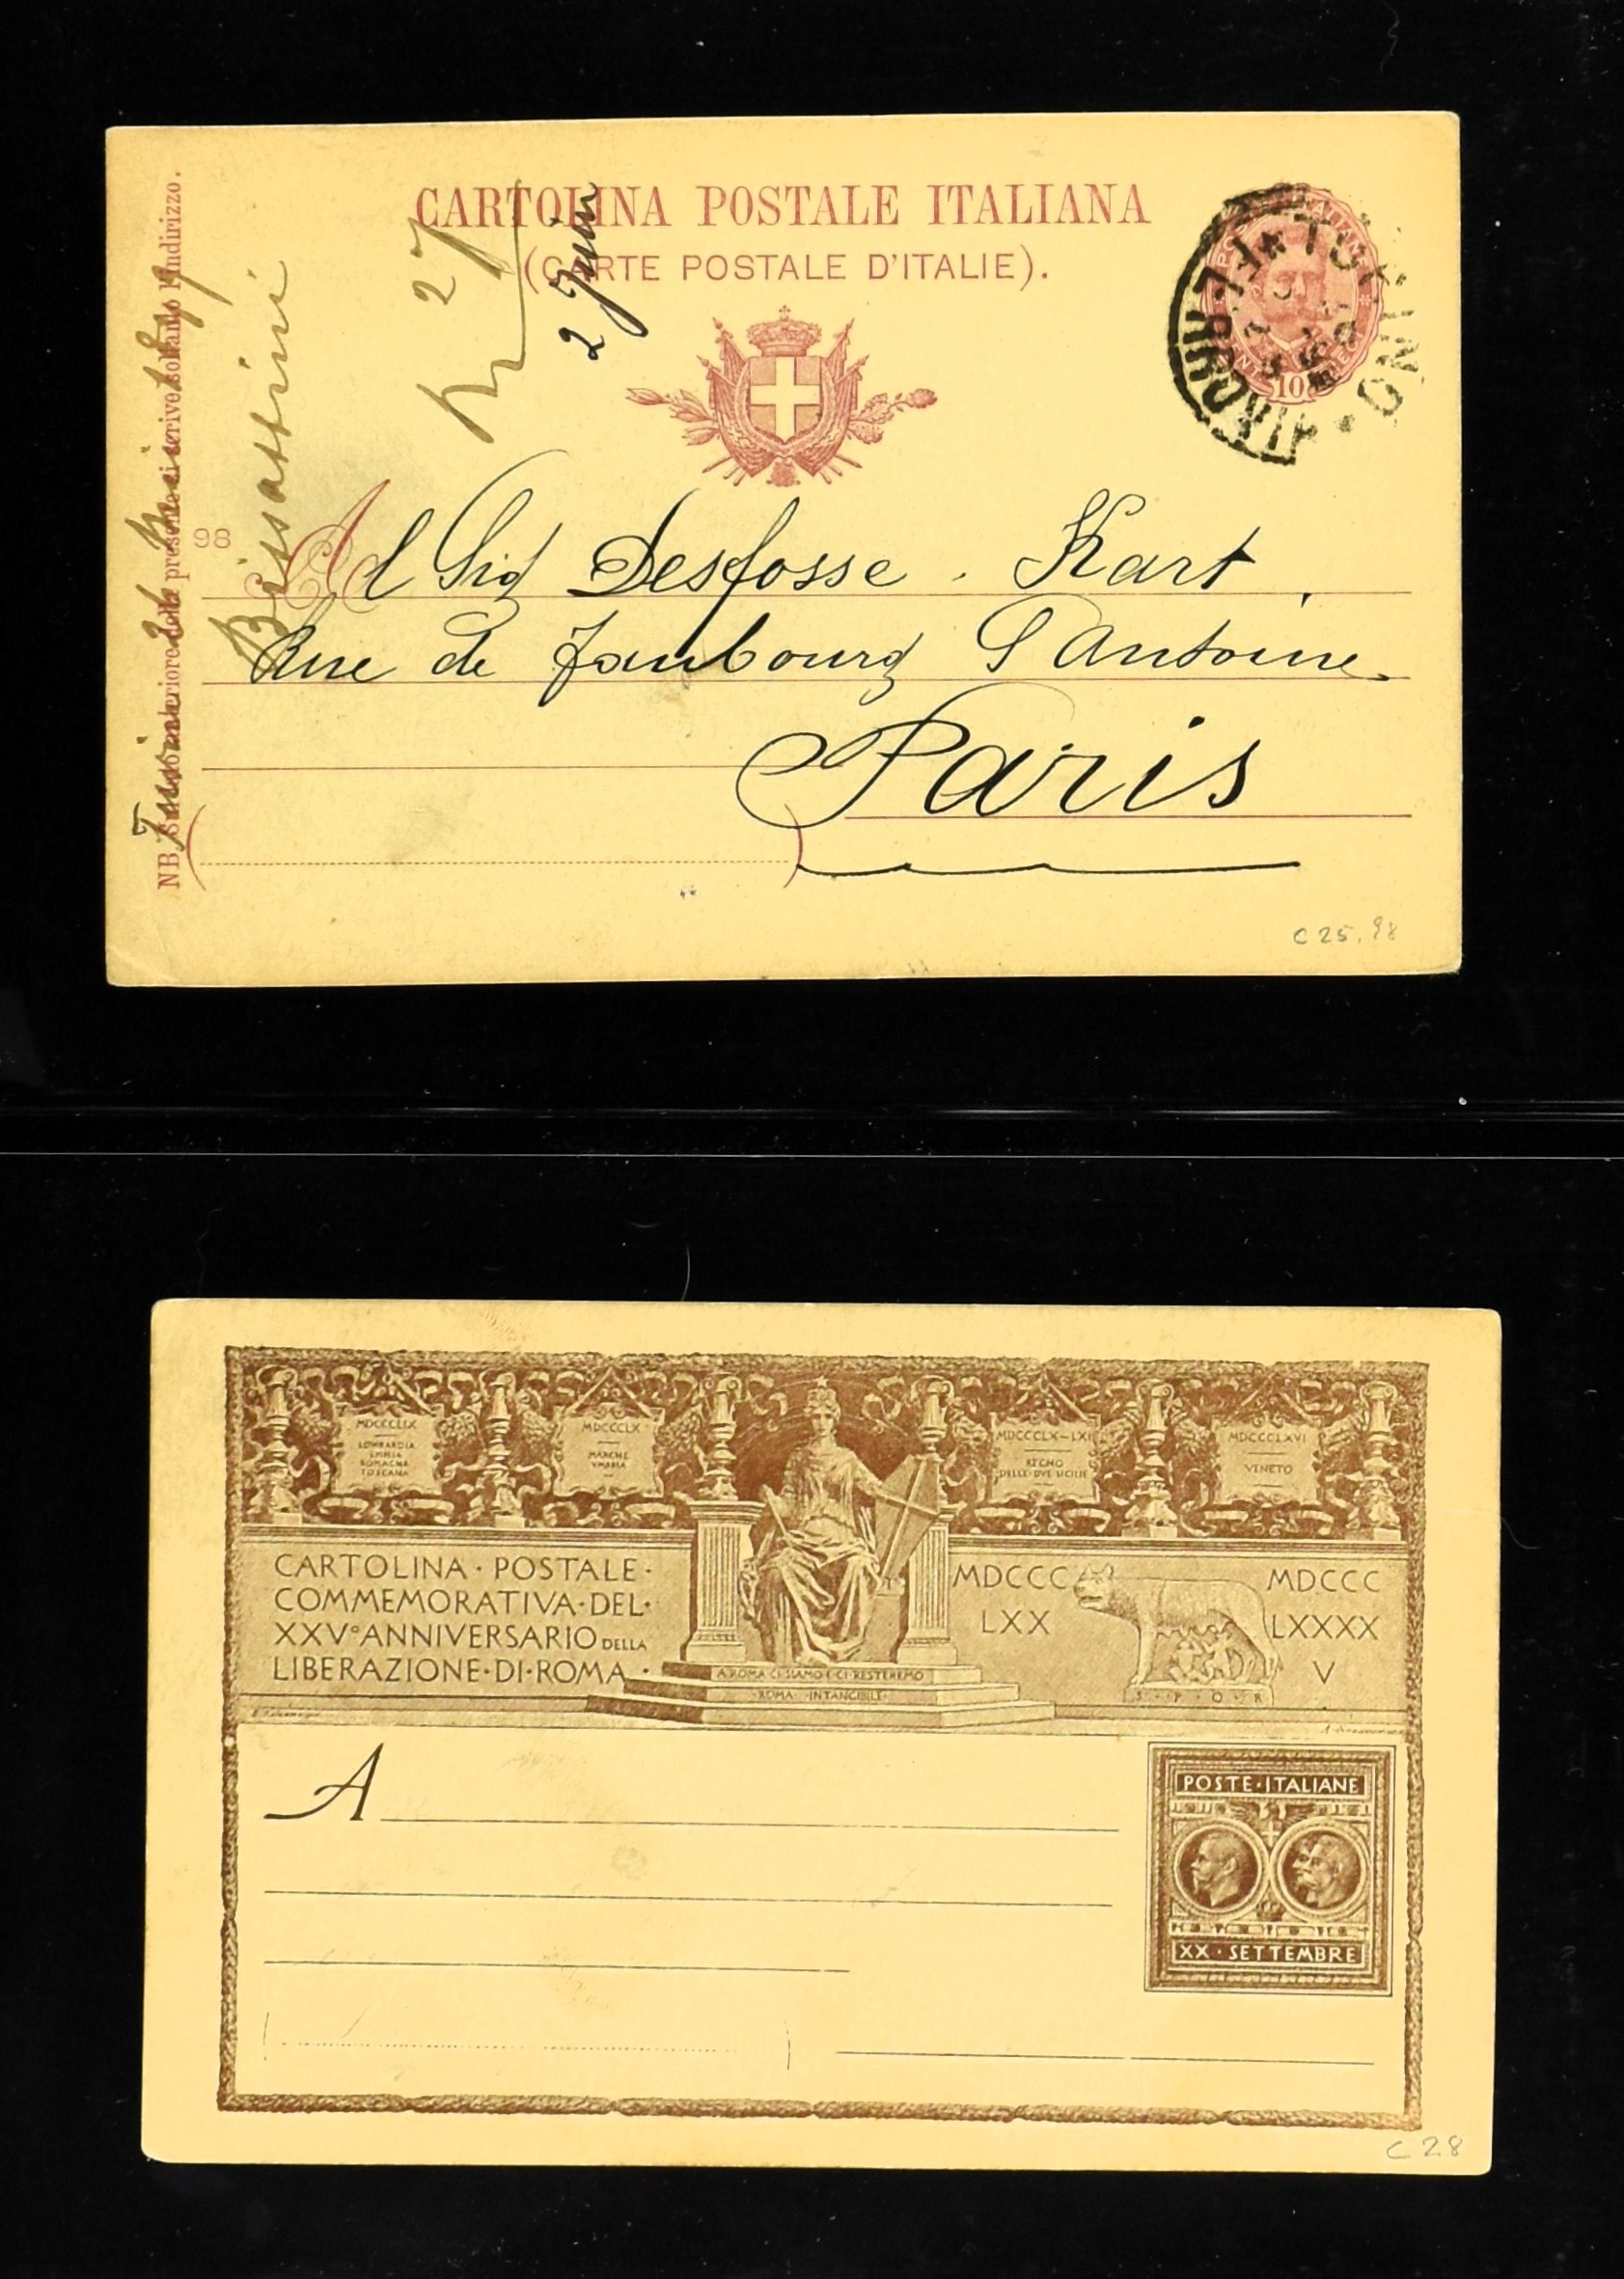 CARTOLINA POSTALE ITALIANA
(CARTE POSTALE D'ITALIE).
27
2 Juin
10
TORINO
FERROVIA
98
Al Sig Desfosse . Kart
Rue de Faubourg S Antoine
Paris
Bissattini
NB. Sul lato anteriore della presente si scrive soltanto l'indirizzo.
C25,98
MDCCCLIX
LOMBARDIA
EMILIA
ROMAGNA
TOSCANA
MDCCCLX
MARCHE
VMBRIA
MDCCCLX-LXI
REGNO
DELLE·DVE·SICILIE
MDCCCLXVI
VENETO
CARTOLINA · POSTALE ·
COMMEMORATIVA · DEL ·
XXV° ANNIVERSARIO DELLA
LIBERAZIONE · DI · ROMA ·
MDCCC
LXX
MDCCC
LXXXX
V
S·P·Q·R
A ROMA CI SIAMO E CI RESTEREMO
·ROMA· INTANGIBILE·
A
POSTE · ITALIANE
XX · SETTEMBRE
C 28